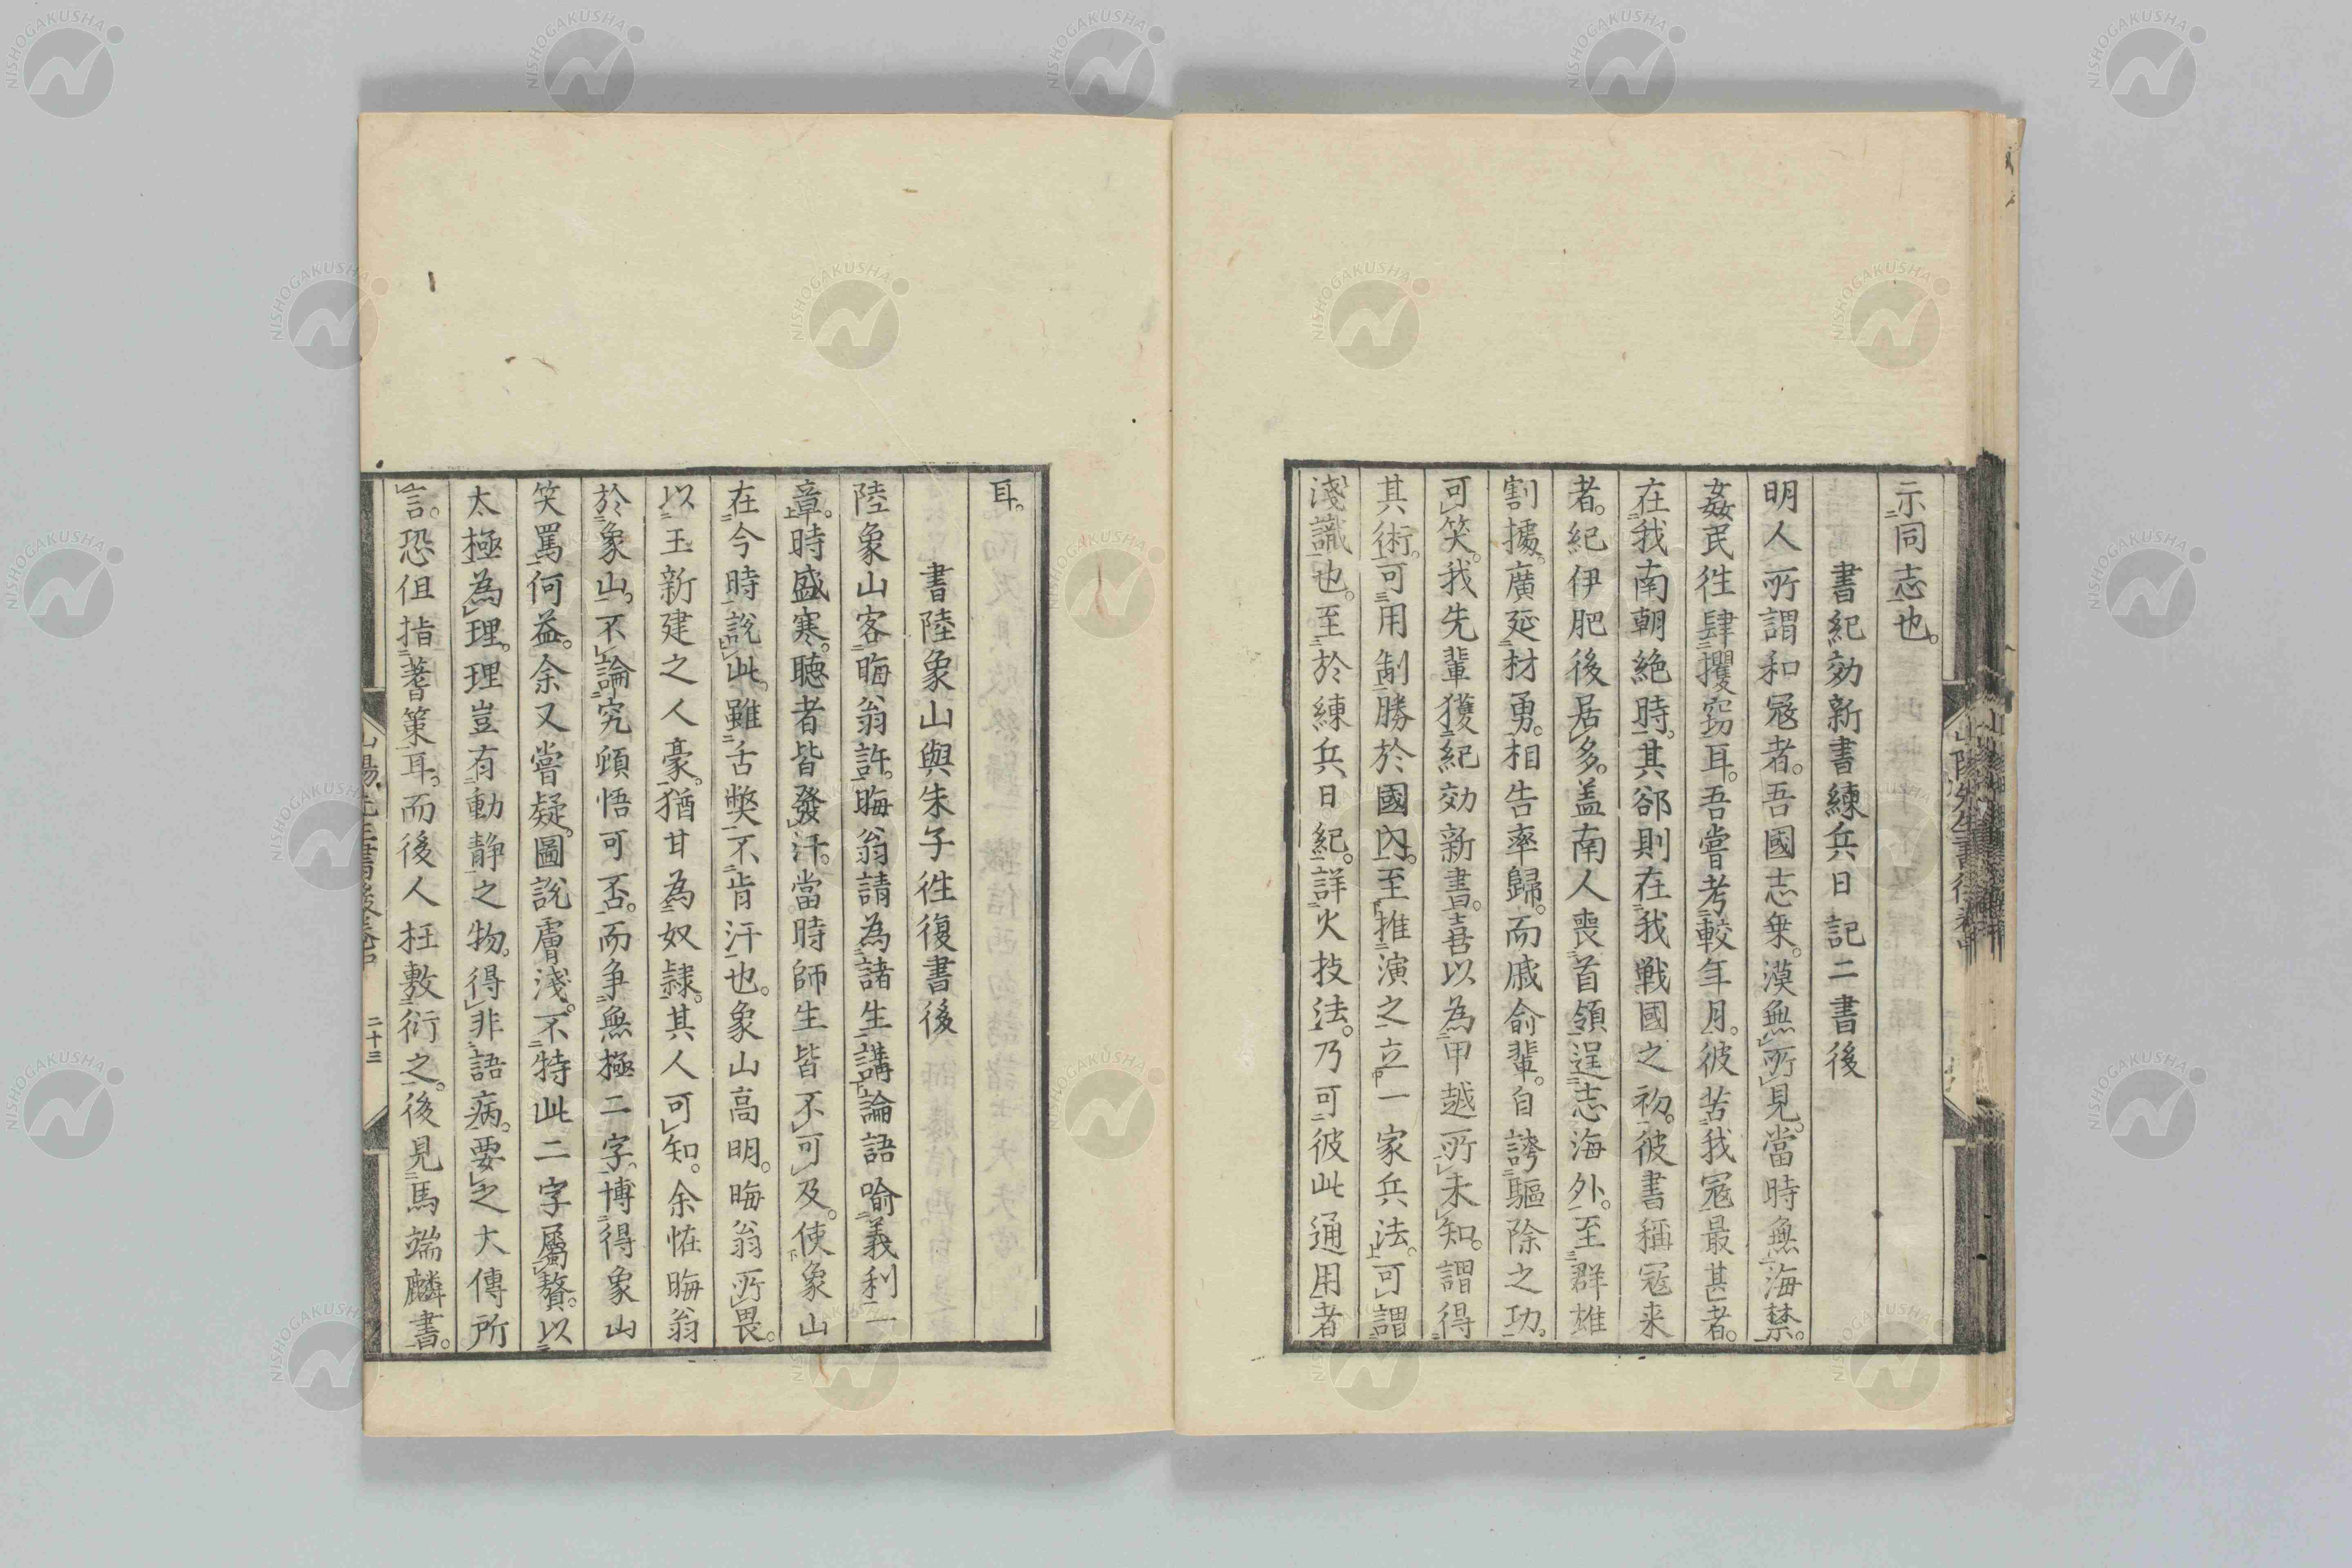 示同志也。
書紀効新書練兵日記二書後
明人所謂和冦者。吾國志乗。漠無所見。當時無海禁。
姦民徃肆攫窃耳。吾嘗考較年月。彼苦我冦最甚者。
在我南朝絶時。其郤則在我戦國之初。彼書稱冦来
者。紀伊肥後居多。盖南人喪首領逞志海外。至群雄
割據。廣延材勇。相告率歸。而戚俞輩。自誇驅除之功。
可笑。我先輩獲紀効新書。喜以為甲越所未知。謂得
其術。可用制勝於國內。至推演之立一家兵法。可謂
淺識也。至於練兵日紀。詳火技法。乃可彼此通用者
耳。
書陸象山與朱子徃復書後
陸象山客晦翁許。晦翁請為諸生講論語喻義利一
章。時盛寒。聴者皆發汗。當時師生皆不可及。使象山
在今時說此。雖舌獘不肯汗也。象山高明。晦翁所畏。
以王新建之人豪。猶甘為奴隷。其人可知。余恠晦翁
於象山。不論究頓悟可否。而争無極二字。博得象山
笑罵何益。余又嘗疑。圖說膚淺。不特此二字屬贅。以
太極為理。理豈有動静之物。得非語病。要之大傳所
言。恐但指蓍策耳。而後人枉敷衍之。後見馬端麟書。
山陽先生書後卷中
二十三